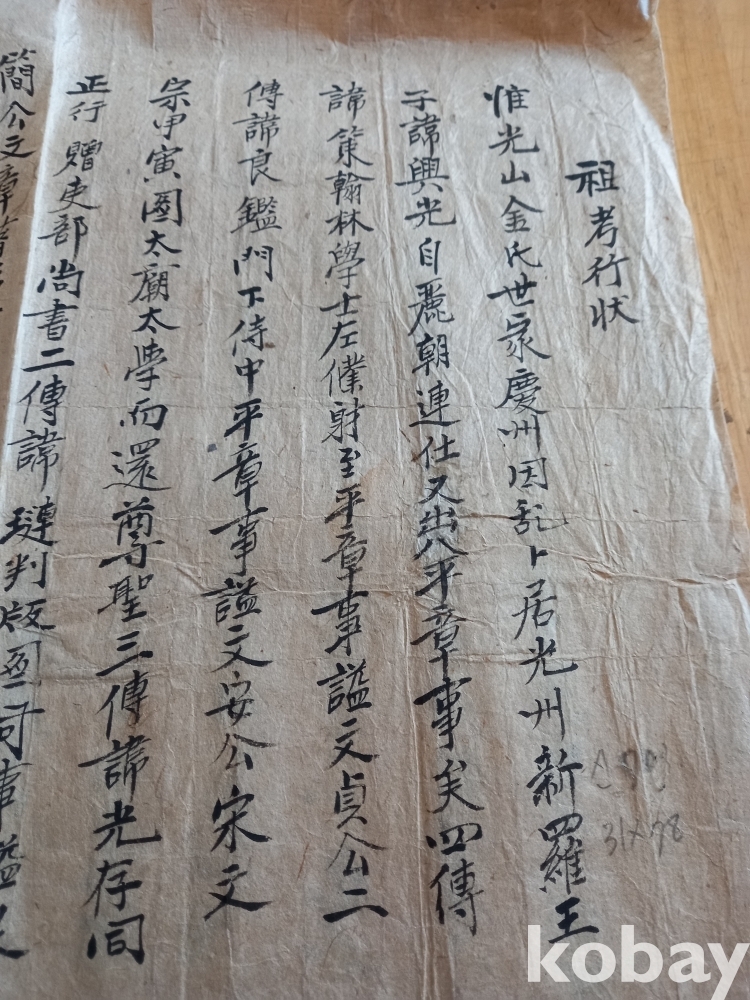 祖考行狀
惟光山金氏世家慶州因乱卜居光州新羅王
子諱興光自麗朝連仕又出八平章事矣四傳
諱策翰林學士左僕射至平章事謚文貞公二
傳諱良鑑門下侍中平章事謚文安公宋文
宗甲寅圖太廟太學而還尊聖三傳諱光存同
正行贈吏部尚書二傳諱璉判版圖司事謚
簡公文章
31x78
kobay